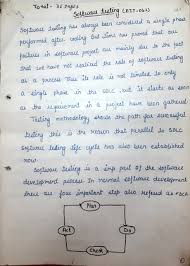 Total - 35 pages
Software Testing (BIT-062)
Software testing has always been considered a single phase
performed after coding. But time has proved that our
failures in software project are mainly due to the fact
that we have not realised the role of software testing
as a process. Thus its role is not limited to only
a single phase in the SDLC but it starts as soon
as the requirement in a project have been gathered.
Testing methodology should the path for successful
testing this is the reason that parallel to SDLC
software testing life cycle has also been established
now.
Software testing is a imp part of the software
development process in normal software development
there are four important step also refered as PDCA
Plan
Act
Do
Check